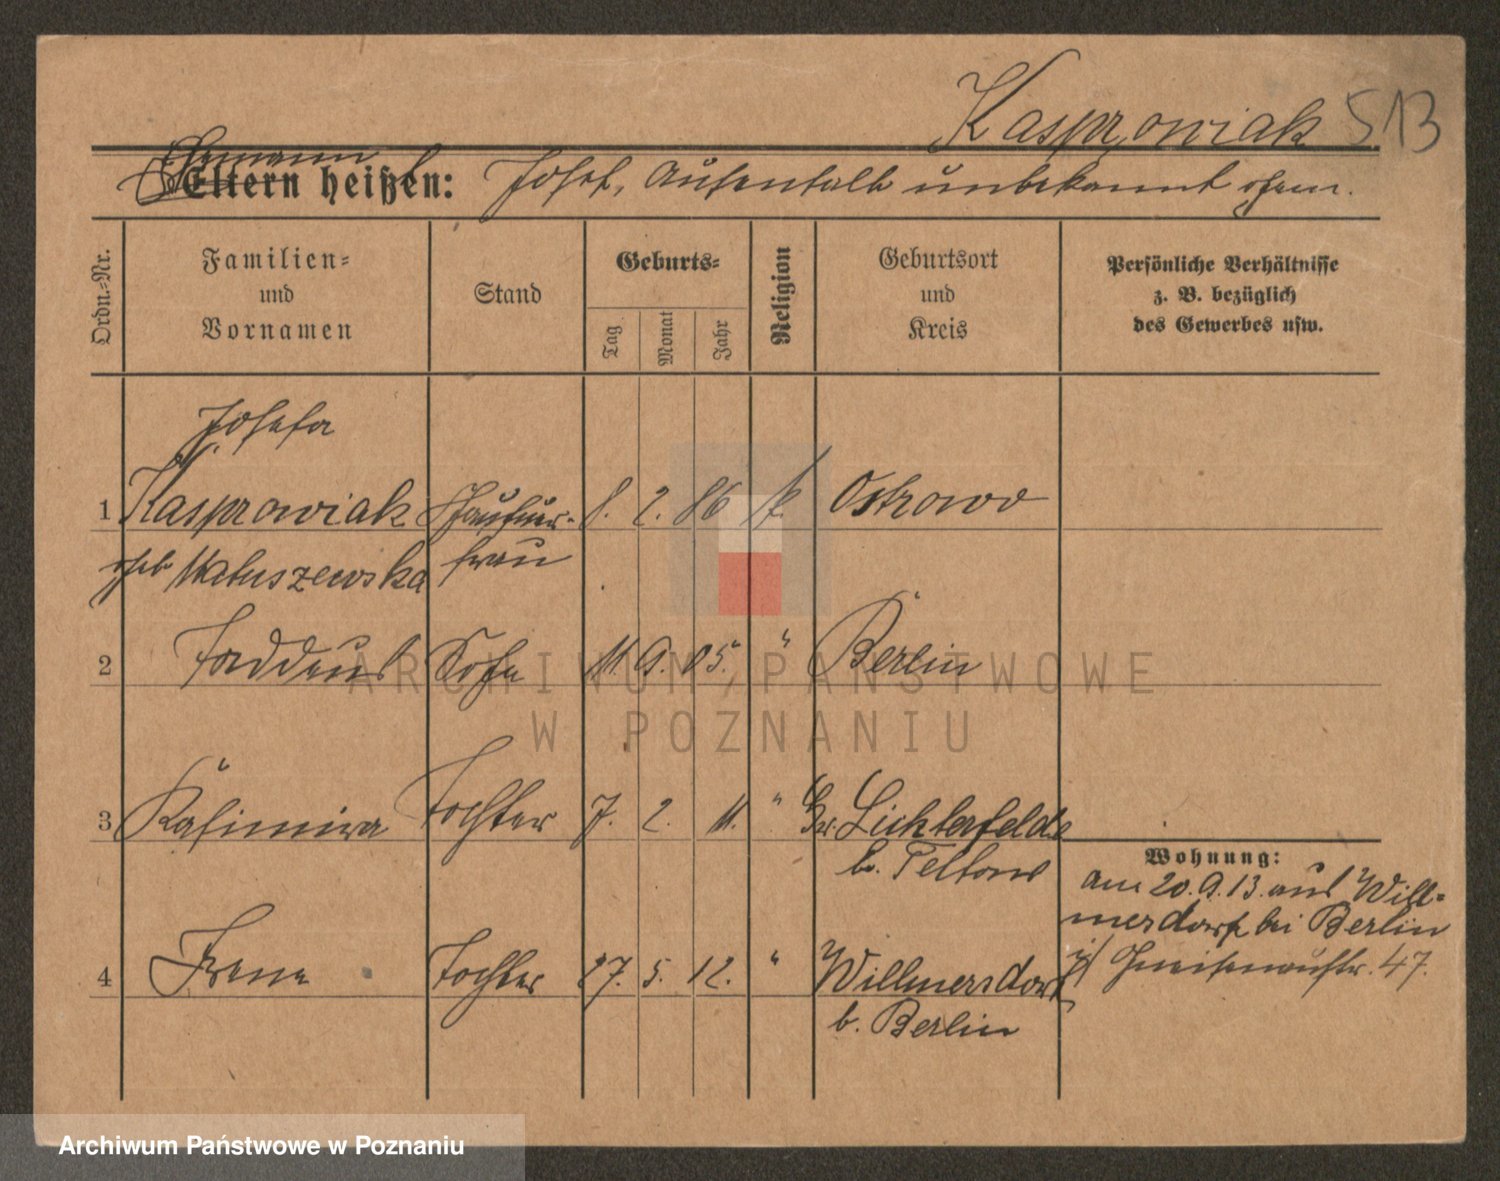 Kasprowiak 513
Ehemann
Eltern heißen: Josef, Aufenthalt unbekannt
Ordn.-Nr.
Familien-
und
Vornamen
Stand
Geburts-
Tag
Monat
Jahr
Religion
Geburtsort
und
Kreis
Persönliche Verhältnisse
z. B. bezüglich
des Gewerbes usw.
Josefa
1 Kasprowiak 8. 2. 86 k. Ostrowo
geb Matuszewska frau
2 Taddeus Sohn 11. 9. 05. " Berlin
ARCHIWUM PAŃSTWOWE
W POZNANIU
3 Kasimira Tochter 7. 2. 11. " Gr. Lichterfelde
b. Teltow
Wohnung:
am 20.9.13. aus Will-
mersdorf bei Berlin
4 Irene Tochter 27. 5. 12. " Willmersdorf
b. Berlin
Gneisenaustr. 47.
Archiwum Państwowe w Poznaniu